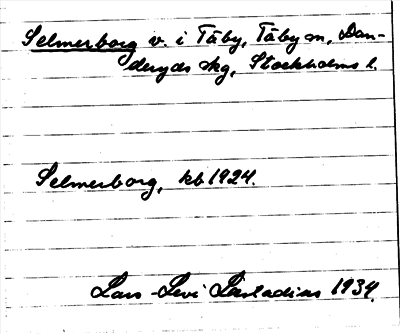 Selmerborg v. i Täby, Täby sn, Dan-
deryds skg, Stockholms l.
Selmerborg, kb 1924.
Lars-Levi Læstadius 1934.